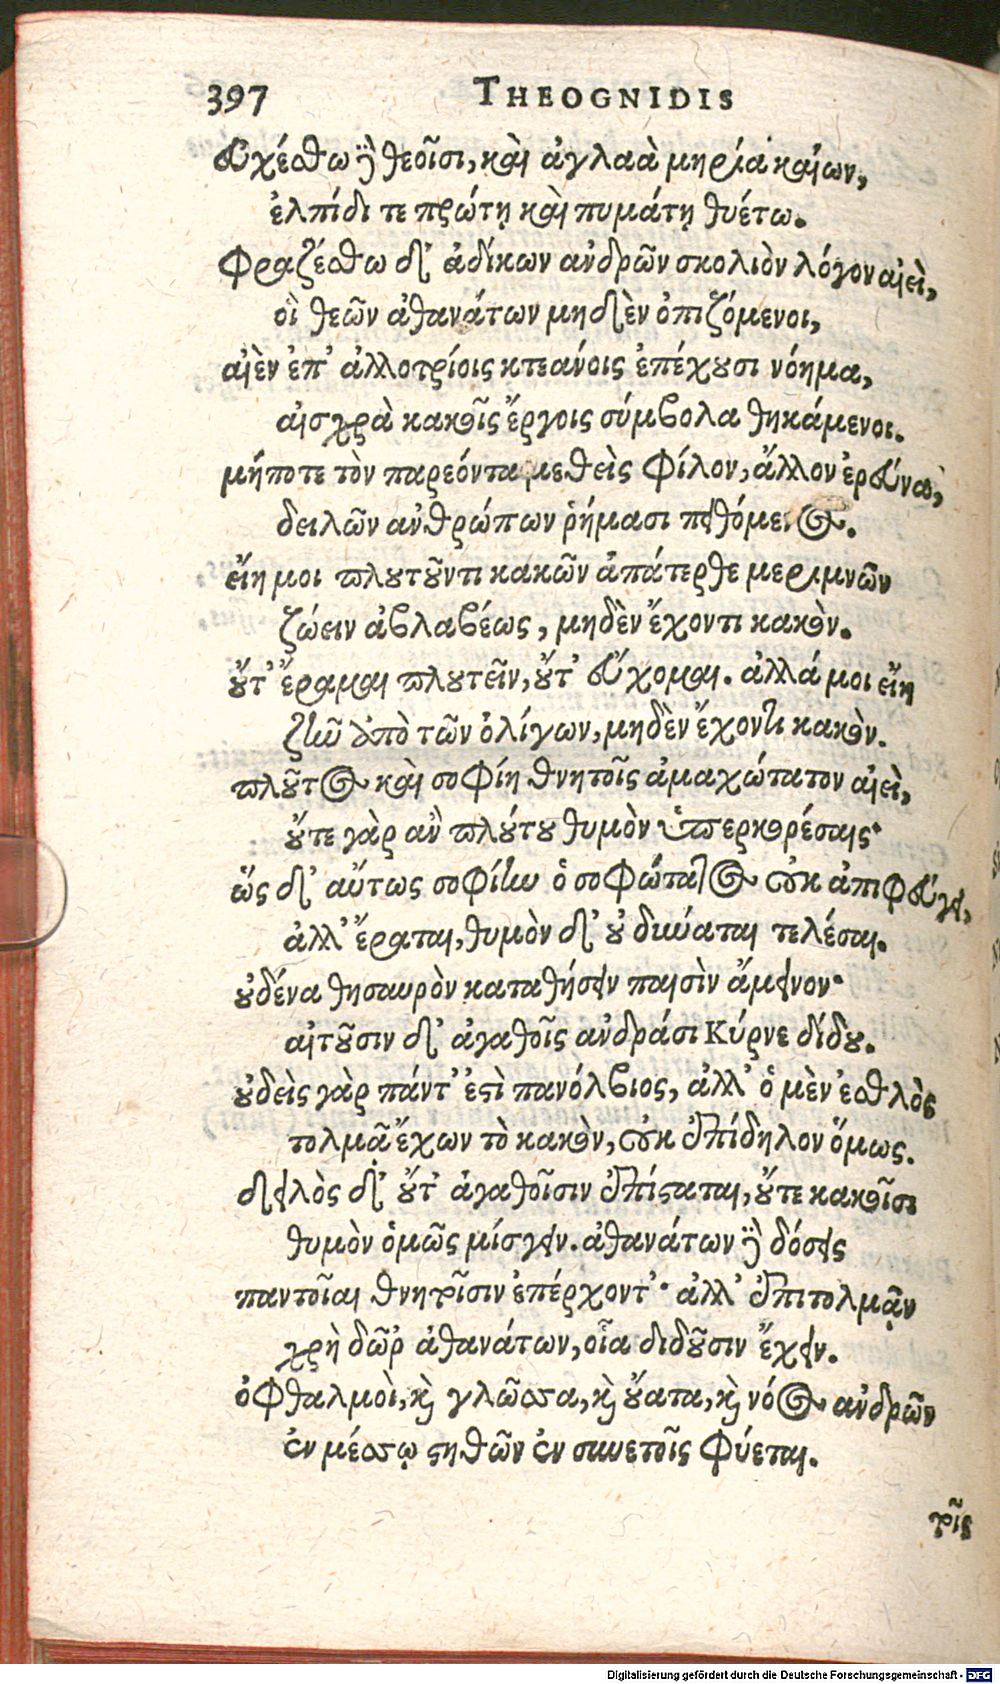 397 THEOGNIDIS
εὐχέσθω δὲ θεοῖσι, καὶ ἀγλαὰ μηρία καίων,
ἐλπίδι τε πρώτῃ καὶ πυμάτῃ θυέτω.
φραζέσθω δ' ἀδίκων ἀνδρῶν σκολιὸν λόγον αἰεὶ,
οἳ θεῶν ἀθανάτων μηδὲν ὀπιζόμενοι,
αἰὲν ἐπ' ἀλλοτρίοις κτεάνοις ἐπέχουσι νόημα,
αἰσχρὰ κακοῖς ἔργοις σύμβολα θηκάμενοι.
μήποτε τὸν παρεόντα μεθεὶς φίλον, ἄλλον ἐρεύνα,
δειλῶν ἀνθρώπων ῥήμασι πειθόμενος.
εἴη μοι πλουτοῦντι κακῶν ἀπάτερθε μεριμνῶν
ζώειν ἀβλαβέως, μηδὲν ἔχοντι κακόν.
οὔτ' ἔραμαι πλουτεῖν, οὔτ' εὔχομαι. ἀλλά μοι εἴη
ζῆν ἀπὸ τῶν ὀλίγων, μηδὲν ἔχοντι κακόν.
πλοῦτος καὶ σοφίη θνητοῖς ἀμαχώτατον αἰεὶ,
οὔτε γὰρ ἂν πλούτου θυμὸν ὑπερκορέσαις·
ὥς δ' αὔτως σοφίην ὁ σοφώτατος οὐκ ἀπιφεύγει,
ἀλλ' ἔραται, θυμὸν δ' οὐ δύναται τελέσαι.
οὐδένα θησαυρὸν καταθήσειν παισὶν ἄμεινον·
αἰτοῦσιν δ' ἀγαθοῖς ἀνδράσι Κύρνε δίδου.
οὐδεὶς γὰρ πάντ' ἐστὶ πανόλβιος, ἀλλ' ὁ μὲν ἐσθλὸς
τολμᾷ ἔχων τὸ κακόν, οὐκ ἐπίδηλον ὅμως.
δειλὸς δ' οὔτ' ἀγαθοῖσιν ἐπίσταται, οὔτε κακοῖσι
θυμὸν ὁμῶς μίσγειν. ἀθανάτων δὲ δόσεις
παντοῖαι θνητοῖσιν ἐπέρχοντ'· ἀλλ' ἐπιτολμᾷν
χρὴ δῶρ' ἀθανάτων, οἷα διδοῦσιν ἔχειν.
ὀφθαλμοὶ, καὶ γλῶσσα, καὶ οὔατα, καὶ νόος ἀνδρῶν
ἐν μέσσῳ στηθῶν ἐν συνετοῖς φύεται.
τοῖς
Digitalisierung gefördert durch die Deutsche Forschungsgemeinschaft - DFG